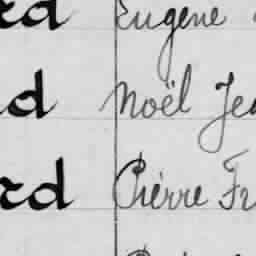 rd Eugene
d Noël Jea
rd Pierre Fr